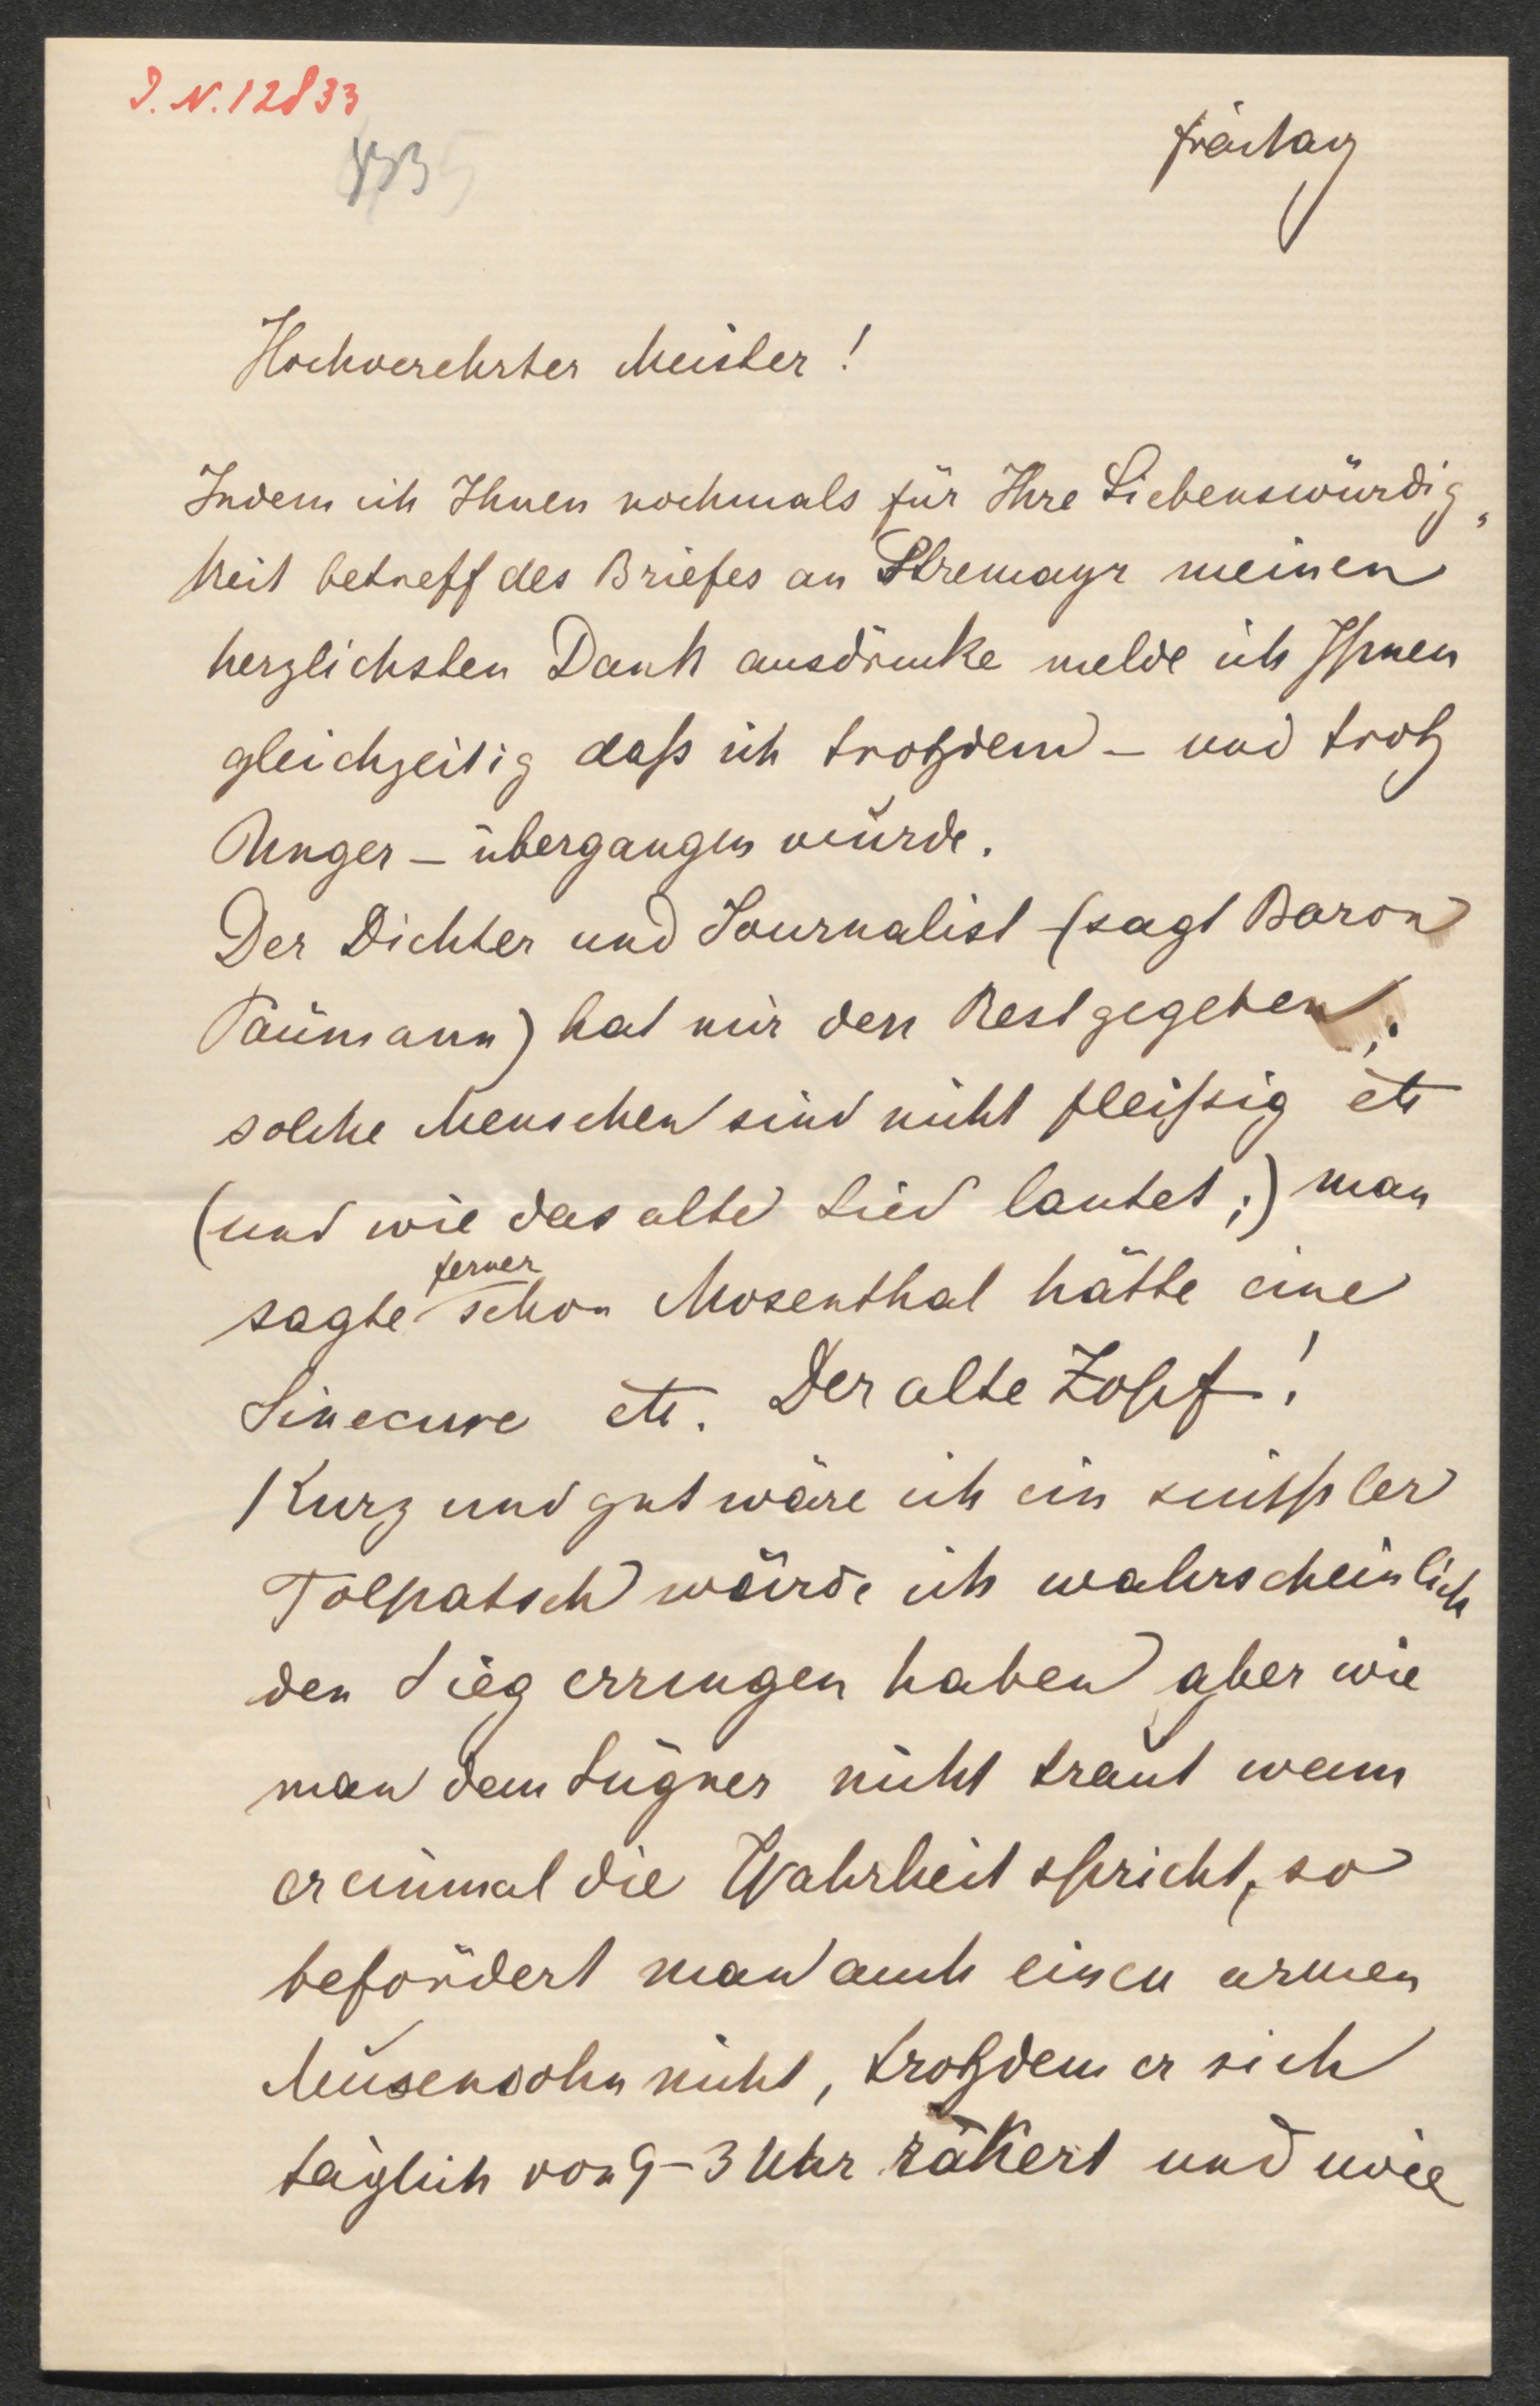 I. N. 12833
Freitag
Hochverehrter Meister!
Indem ich Ihnen nochmals für Ihre Liebenswürdig„
keit betreff des Briefes an Stremayr meinen
herzlichsten Dank ausdrücke melde ich Ihnen
gleichzeitig daß ich trotzdem – und trotz
Unger – übergangen wurde.
Der Dichter und Journalist (sagt Baron
Päumann) hat mir den Rest gegeben;
solche Menschen sind nicht fleißig etc
(und wie das alte Lied lautet;) man
sagte ferner schon Mosenthal hätte eine
Sinecure etc. Der alte Zopf!
Kurz und gut wäre ich ein simpler
Tolpatsch würde ich wahrscheinlich
den Sieg errungen haben aber wie
man dem Lügner nicht traut wenn
er einmal die Wahrheit spricht, so
befördert man auch einen armen
Musensohn nicht, trotzdem er sich
täglich von 9–3 Uhr räkert und wie